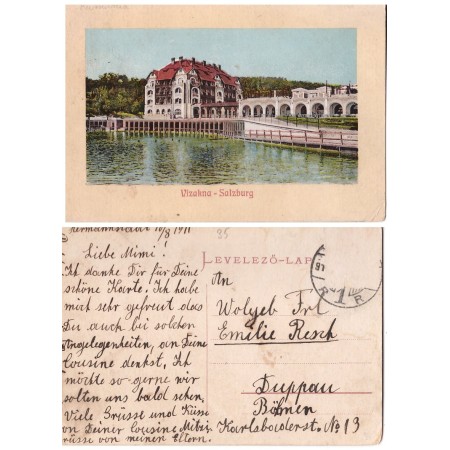 Vizakna - Salzburg
Hermannstadt 10/8 1911
Liebe Mimi!
Ich danke Dir für Deine
schöne Karte. Ich habe
mich sehr gefreut das
Du auch bei solchen
Angelegenheiten, an Deine
Cousine denkst. Ich
möchte so gerne wir
sollten uns bald sehen.
Viele Grüsse und Küsse
von Deiner Cousine
Grüsse von meinen Eltern.
35
LEVELEZŐ-LAP
An
Wolgeb Frl
Emilie Resch
Duppau
Böhmen
Karlsbaderst. No 13
1